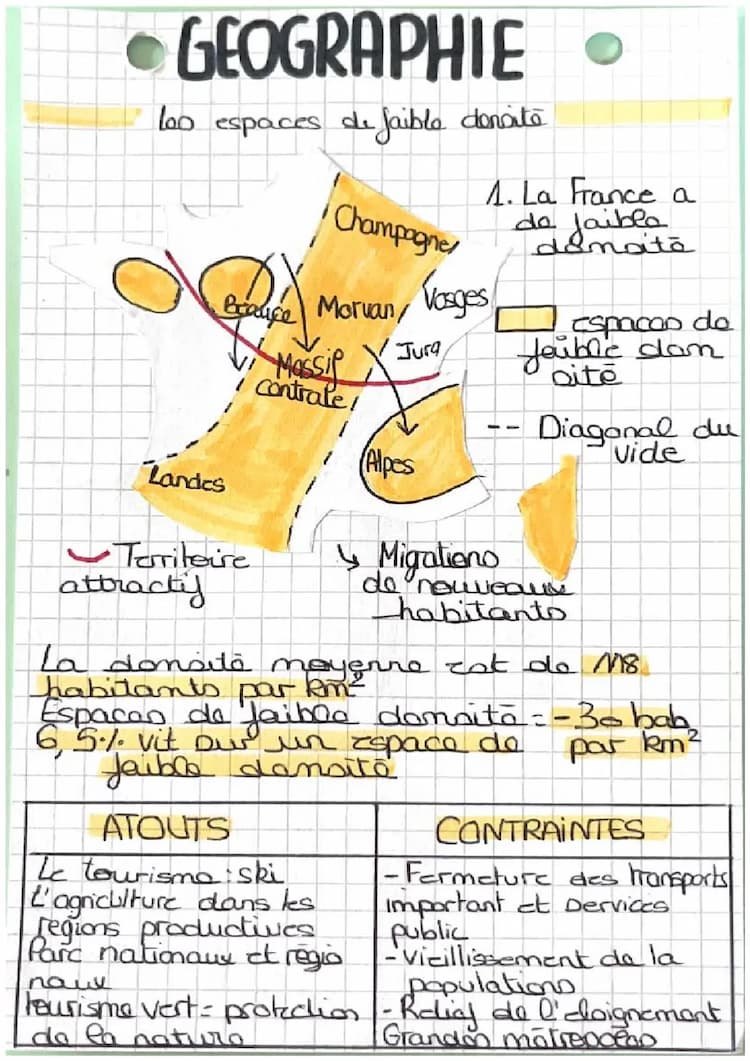 GEOGRAPHIE
les espaces de faible densité
Champagne
Beauce
Morvan
Vosges
Jura
Massif
centrale
Landes
Alpes
1. La France a
de faible
densité
espaces de
faible den
sité
-- Diagonal du
vide
Territoire
attractif
↳ Migrations
de nouveaux
habitants
La densité moyenne est de 118
habitants par km²
Espaces de faible densité = -30 hab
par km²
6,5% vit sur un espace de
faible densité
ATOUTS
Le tourisme : ski
L'agriculture dans les
régions productives
Parc nationaux et régio
naux
tourisme vert = protection
de la nature
CONTRAINTES
- Fermeture des transports
important et services
public
- Vieillissement de la
populations
- Relief de l'eloignement
Grandes métropoles